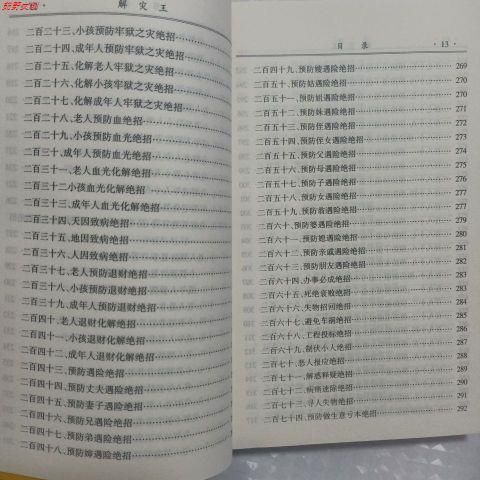 解灾王
二百二十三、小孩预防牢狱之灾绝招
二百二十四、成年人预防牢狱之灾绝招
二百二十五、化解老人牢狱之灾绝招
二百二十六、化解小孩牢狱之灾绝招
二百二十七、化解成年人牢狱之灾绝招
二百二十八、老人预防血光绝招
二百二十九、小孩预防血光绝招
二百三十、成年人预防血光绝招
二百三十一、老人血光化解绝招
二百三十二小孩血光化解绝招
二百三十三、成年人血光化解绝招
二百三十四、天因致病绝招
二百三十五、地因致病绝招
二百三十七、老人预防退财绝招
二百三十八、小孩预防退财绝招
二百三十九、成年人预防退财绝招
二百四十、老人退财化解绝招
二百四十一、小孩退财化解绝招
二百四十二、成年人退财化解绝招
二百四十三、预防遇险绝招
二百四十四、预防丈夫遇险绝招
二百四十五、预防妻子遇险绝招
二百四十六、预防兄遇险绝招
二百四十七、预防弟遇险绝招
二百四十八、预防婶遇险绝招
目录 ·13·
二百四十九、预防嫂遇险绝招 269
二百五十、预防姑遇险绝招 270
二百五十一、预防姐遇险绝招 270
二百五十二、预防妹遇险绝招 271
二百五十三、预防侄遇险绝招 272
二百五十四、预防侄女遇险绝招 273
二百五十五、预防父遇险绝招 274
二百五十六、预防母遇险绝招 274
二百五十七、预防子遇险绝招 275
二百五十八、预防女遇险绝招 276
二百五十九、预防翁遇险绝招 277
二百六十、预防婆遇险绝招 278
二百六十一、预防媳遇险绝招 280
二百六十二、预防亲戚遇险绝招 281
二百六十三、预防朋友遇险绝招 282
二百六十四、办事必成绝招 282
二百六十五、死绝衰败绝招 283
二百六十六、失物招回绝招 284
二百六十七、避免车祸绝招 285
二百六十八、工程投标绝招 286
二百六十九、制伏小人绝招 288
二百七十、恶人报应绝招 289
二百七十一、解惑释疑绝招 290
二百七十二、病痛速除绝招 290
二百七十三、寻人失物绝招 291
二百七十四、预防做生意亏本绝招 292